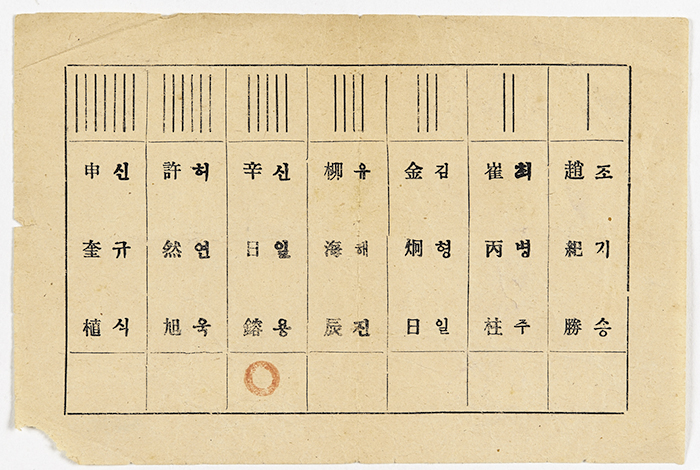 조기승
趙紀勝
최병주
崔丙柱
김형일
金炯日
유해진
柳海辰
신일용
辛日鎔
허연욱
許然旭
신규식
申奎植